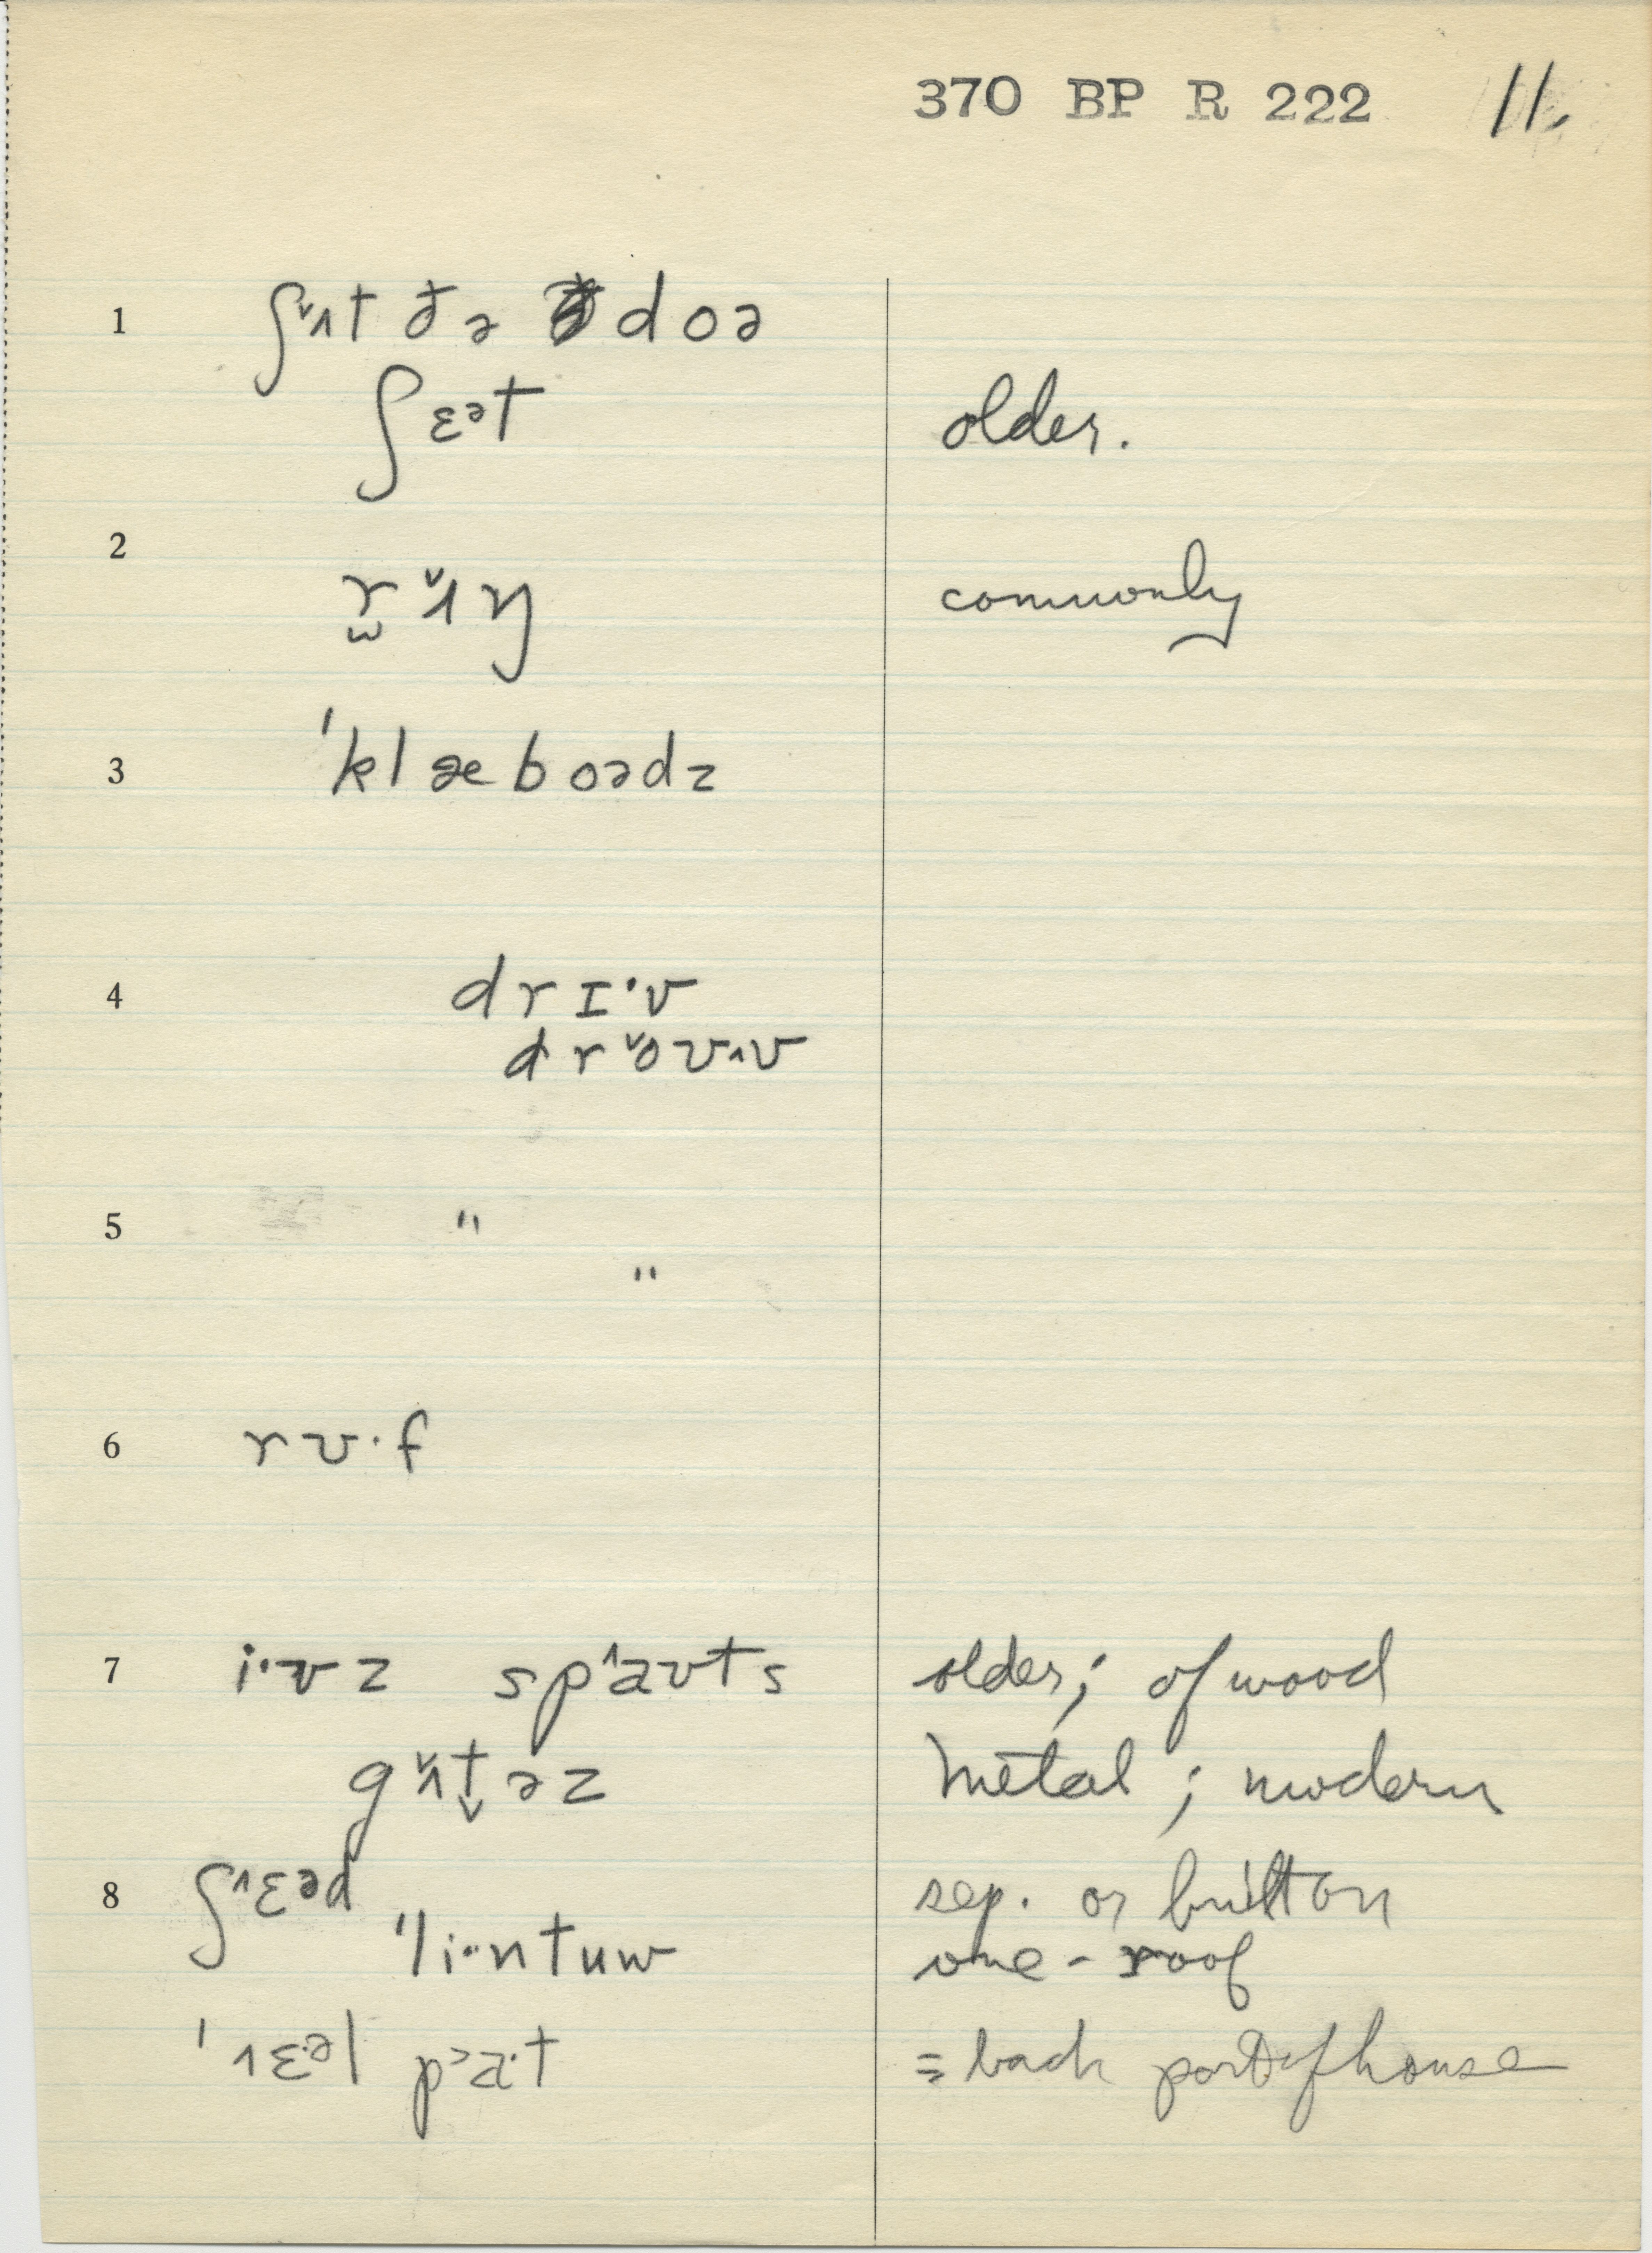 370 BP R 222 11.
1 ʃ˅ʌt ðə doə
ʃɛᵊt older.
2 r̫˅ʌŋ commonly
3 'klæboədz
4 drɪ·v
dr˅oʊ^v
5 "
"
6 rʊ·f
7 i·vz sp^aʊts older; of wood
g˅ʌt̬əz metal; modern
8 ʃ^ɛᵊd sep. or built on
'li·ntuw one-roof
' ˄ɛ·ᵊl pa·t = back part of house